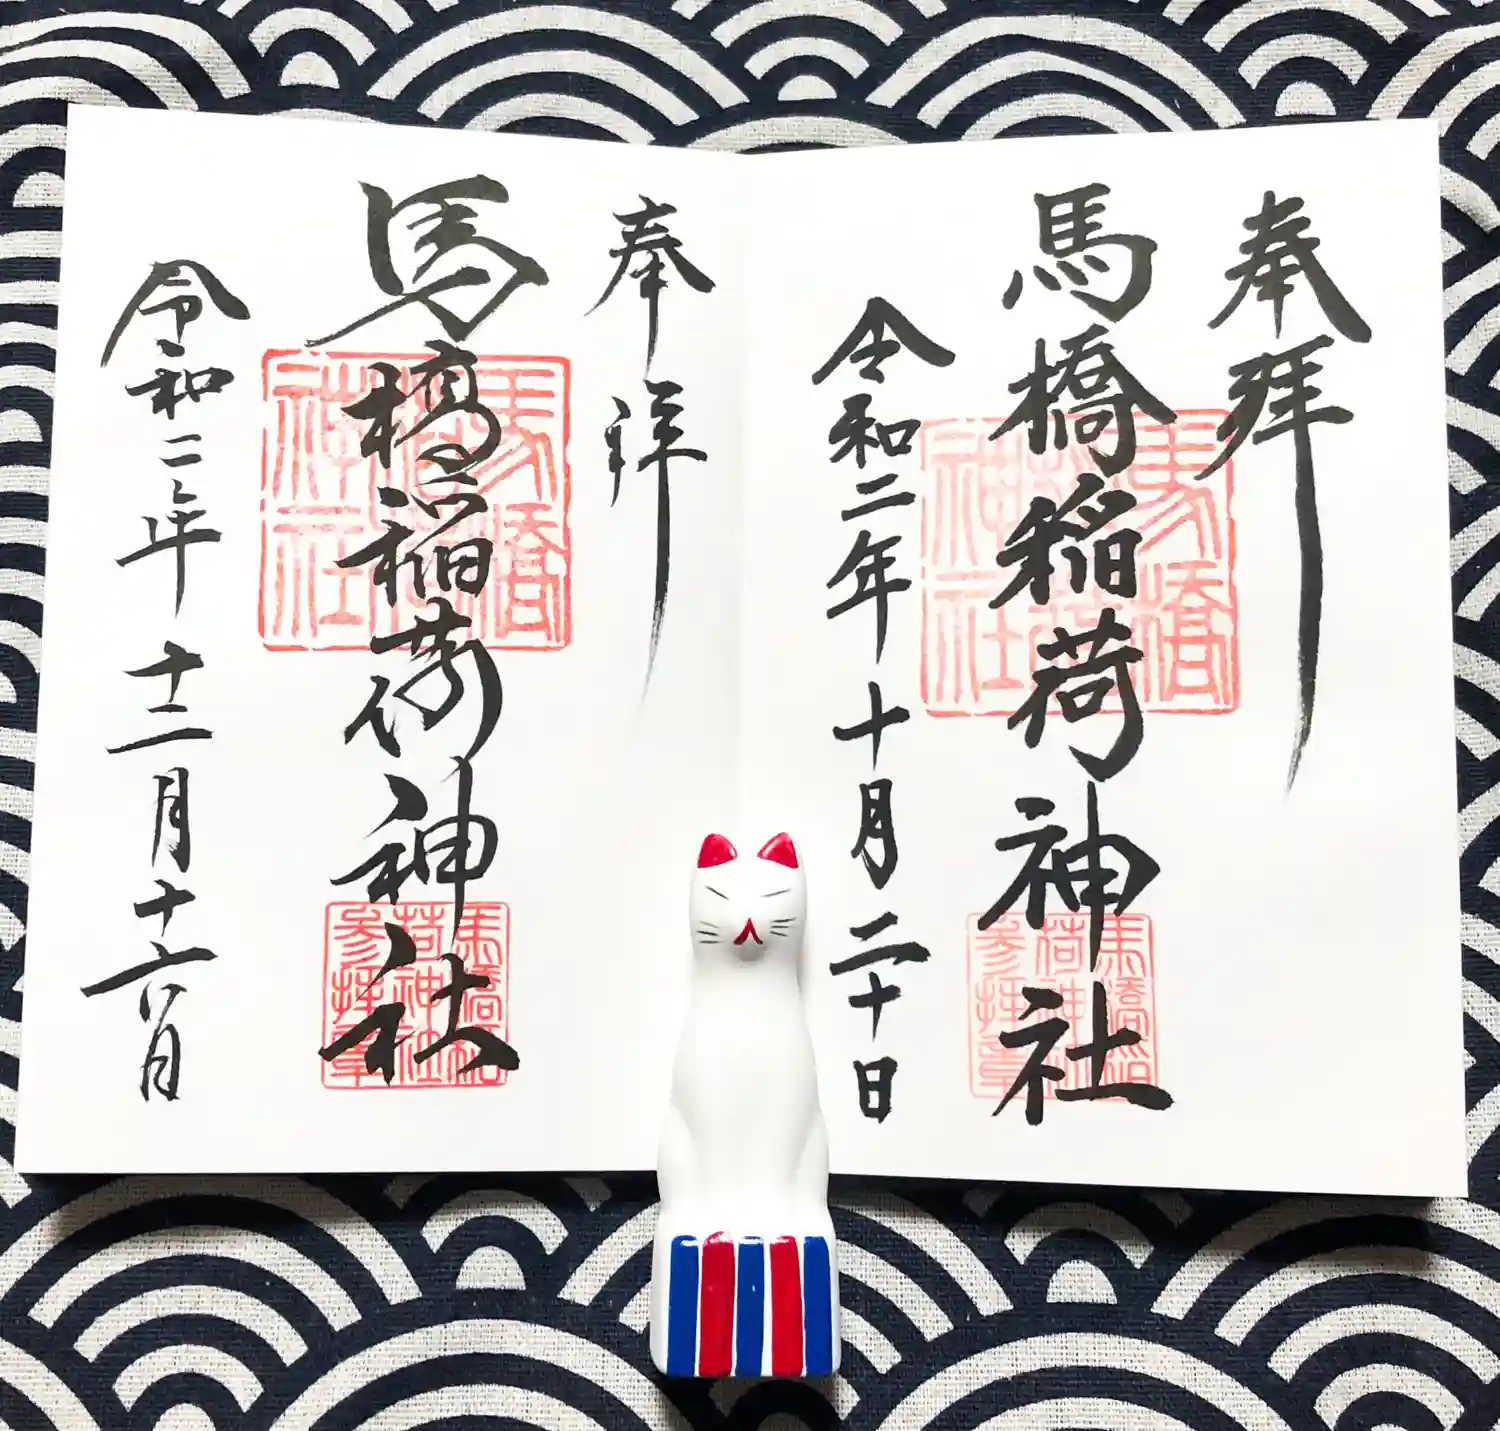 奉拝
馬橋稲荷神社
令和二年 十月 二十日
馬橋
稲荷
神社
馬橋稲
荷神社
参拝章
奉拝
馬橋稲荷神社
令和二年 十二月十六日
馬橋
稲荷
神社
馬橋稲
荷神社
参拝章